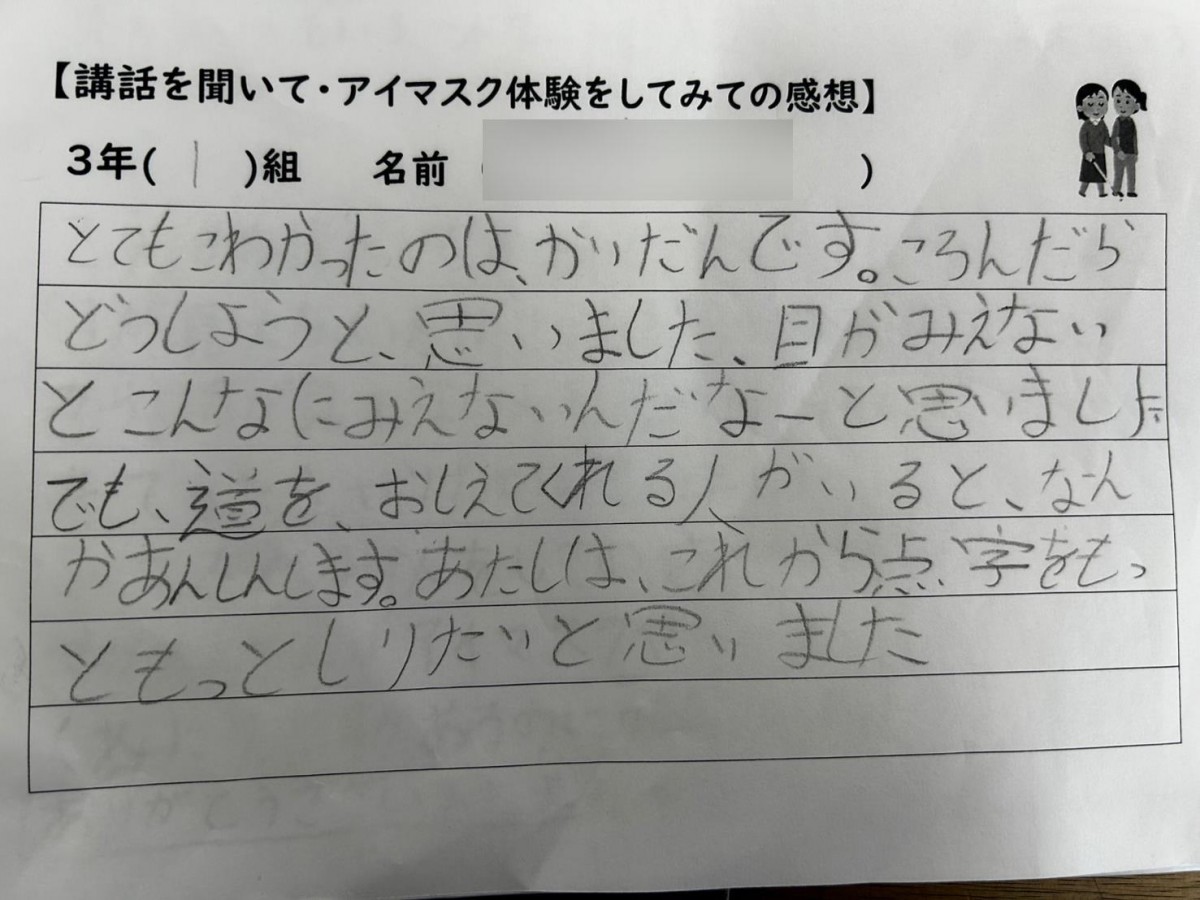 【講話を聞いて・アイマスク体験をしてみての感想】
3年( 1 )組 名前 ( )
とてもこわかったのは、かいだんです。ころんだら
どうしようと、思いました、目がみえない
とこんなにみえないんだなーと思いました
でも、道を、おしえてくれる人がいると、なん
かあんしんします。あたしは、これから点字をもっ
ともっとしりたいと思いました